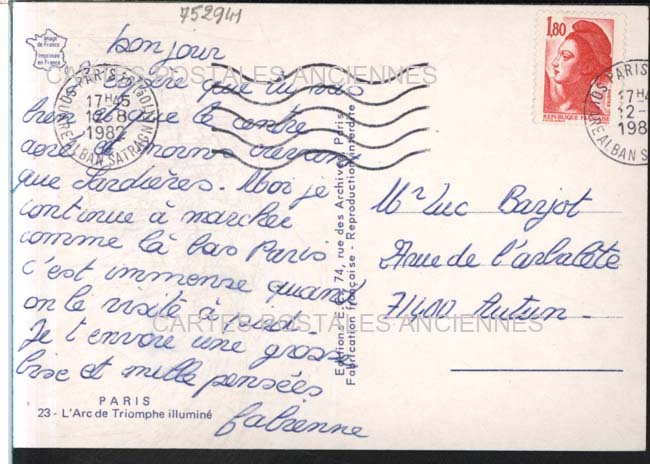 752941
Image
de France
Imprimée
en France
bonjour
J'espère que tu vas
bien et que le centre
aéré de
que Sardières. Moi je
continue à marcher
comme là bas Paris
c'est immense quand
on le visite à pied.
Je t'envoie une grosse
bise et mille pensées
fabienne
PARIS
23 - L'Arc de Triomphe illuminé
CARTES POSTALES ANCIENNES
CARTES POSTALES ANCIENNES
17H45
12-8
1982
PARIS
Editions 74, rue des Archives, Paris
Fabrication française - Reproduction interdite
1,80
REPUBLIQUE FRANCAISE
PARIS
17H4
12-
198
Mr Luc Barjot
rue de l'arbalète
71400 Autun -